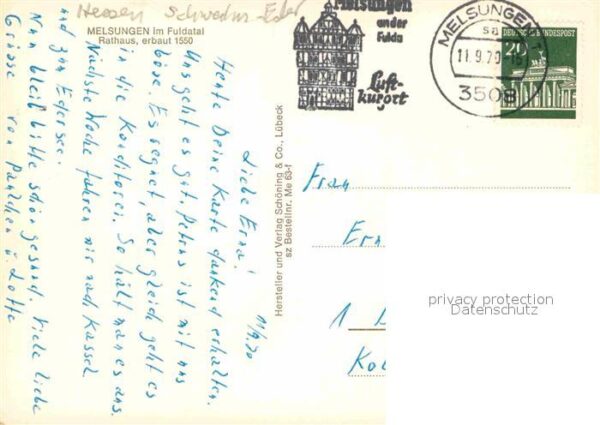 Hessen Schwalm-Eder
MELSUNGEN im Fuldatal
Rathaus, erbaut 1550
11/9.70
Liebe Erna!
Heute Deine Karte dankend erhalten.
Uns geht es gut. Petrus ist mit uns
böse. Es regnet, aber gleich geht es
in die Konditorei. So hält man es aus.
Nächste Woche fahren wir nach Kassel
und zum Edersee.
Nun bleib bitte schön gesund. Viele liebe
Grüsse von Paulchen u. Lotte
Hersteller und Verlag Schöning & Co., Lübeck
sz Bestellnr. Me 63-1
Melsungen
an der
Fulda
Luft-
kurort
MELSUNGEN 1
sa
11.9.70-16
3508
DEUTSCHE BUNDESPOST
20
Frau
Ern
1
Kol
privacy protection
Datenschutz